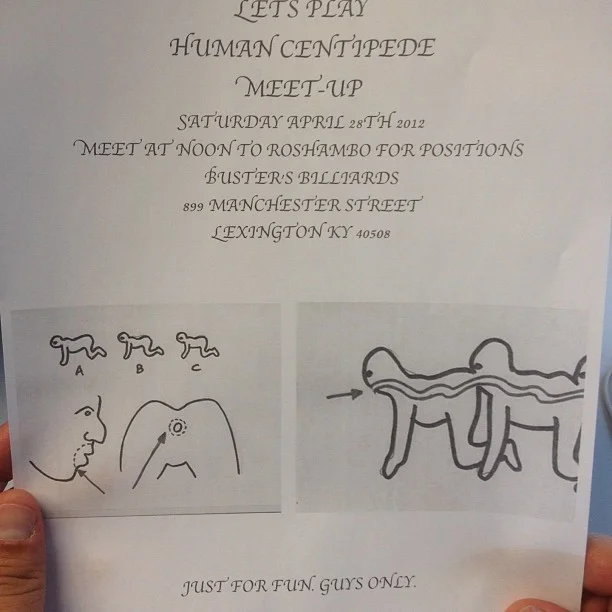 LETS PLAY
HUMAN CENTIPEDE
MEET-UP
SATURDAY APRIL 28TH 2012
MEET AT NOON TO ROSHAMBO FOR POSITIONS
BUSTER'S BILLIARDS
899 MANCHESTER STREET
LEXINGTON KY 40508
A B C
JUST FOR FUN. GUYS ONLY.